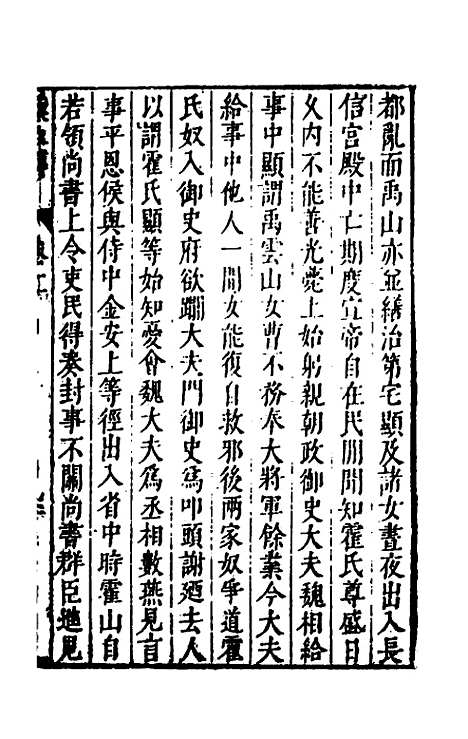 都亂而禹山亦並繕治第宅顯及諸女晝夜出入長
信宮殿中亡期度宣帝自在民間聞知霍氏尊盛日
久內不能善光薨上始躬親朝政御史大夫魏相給
事中顯謂禹雲山女曹不務奉大將軍餘業今大夫
給事中他人一間女能復自救邪後兩家奴爭道霍
氏奴入御史府欲躢大夫門御史為叩頭謝廼去人
以謂霍氏顯等始知愛會魏大夫為丞相數燕見言
事平恩侯與侍中金安上等徑出入省中時霍山自
若領尚書上令吏民得奏封事不關尚書群臣進見